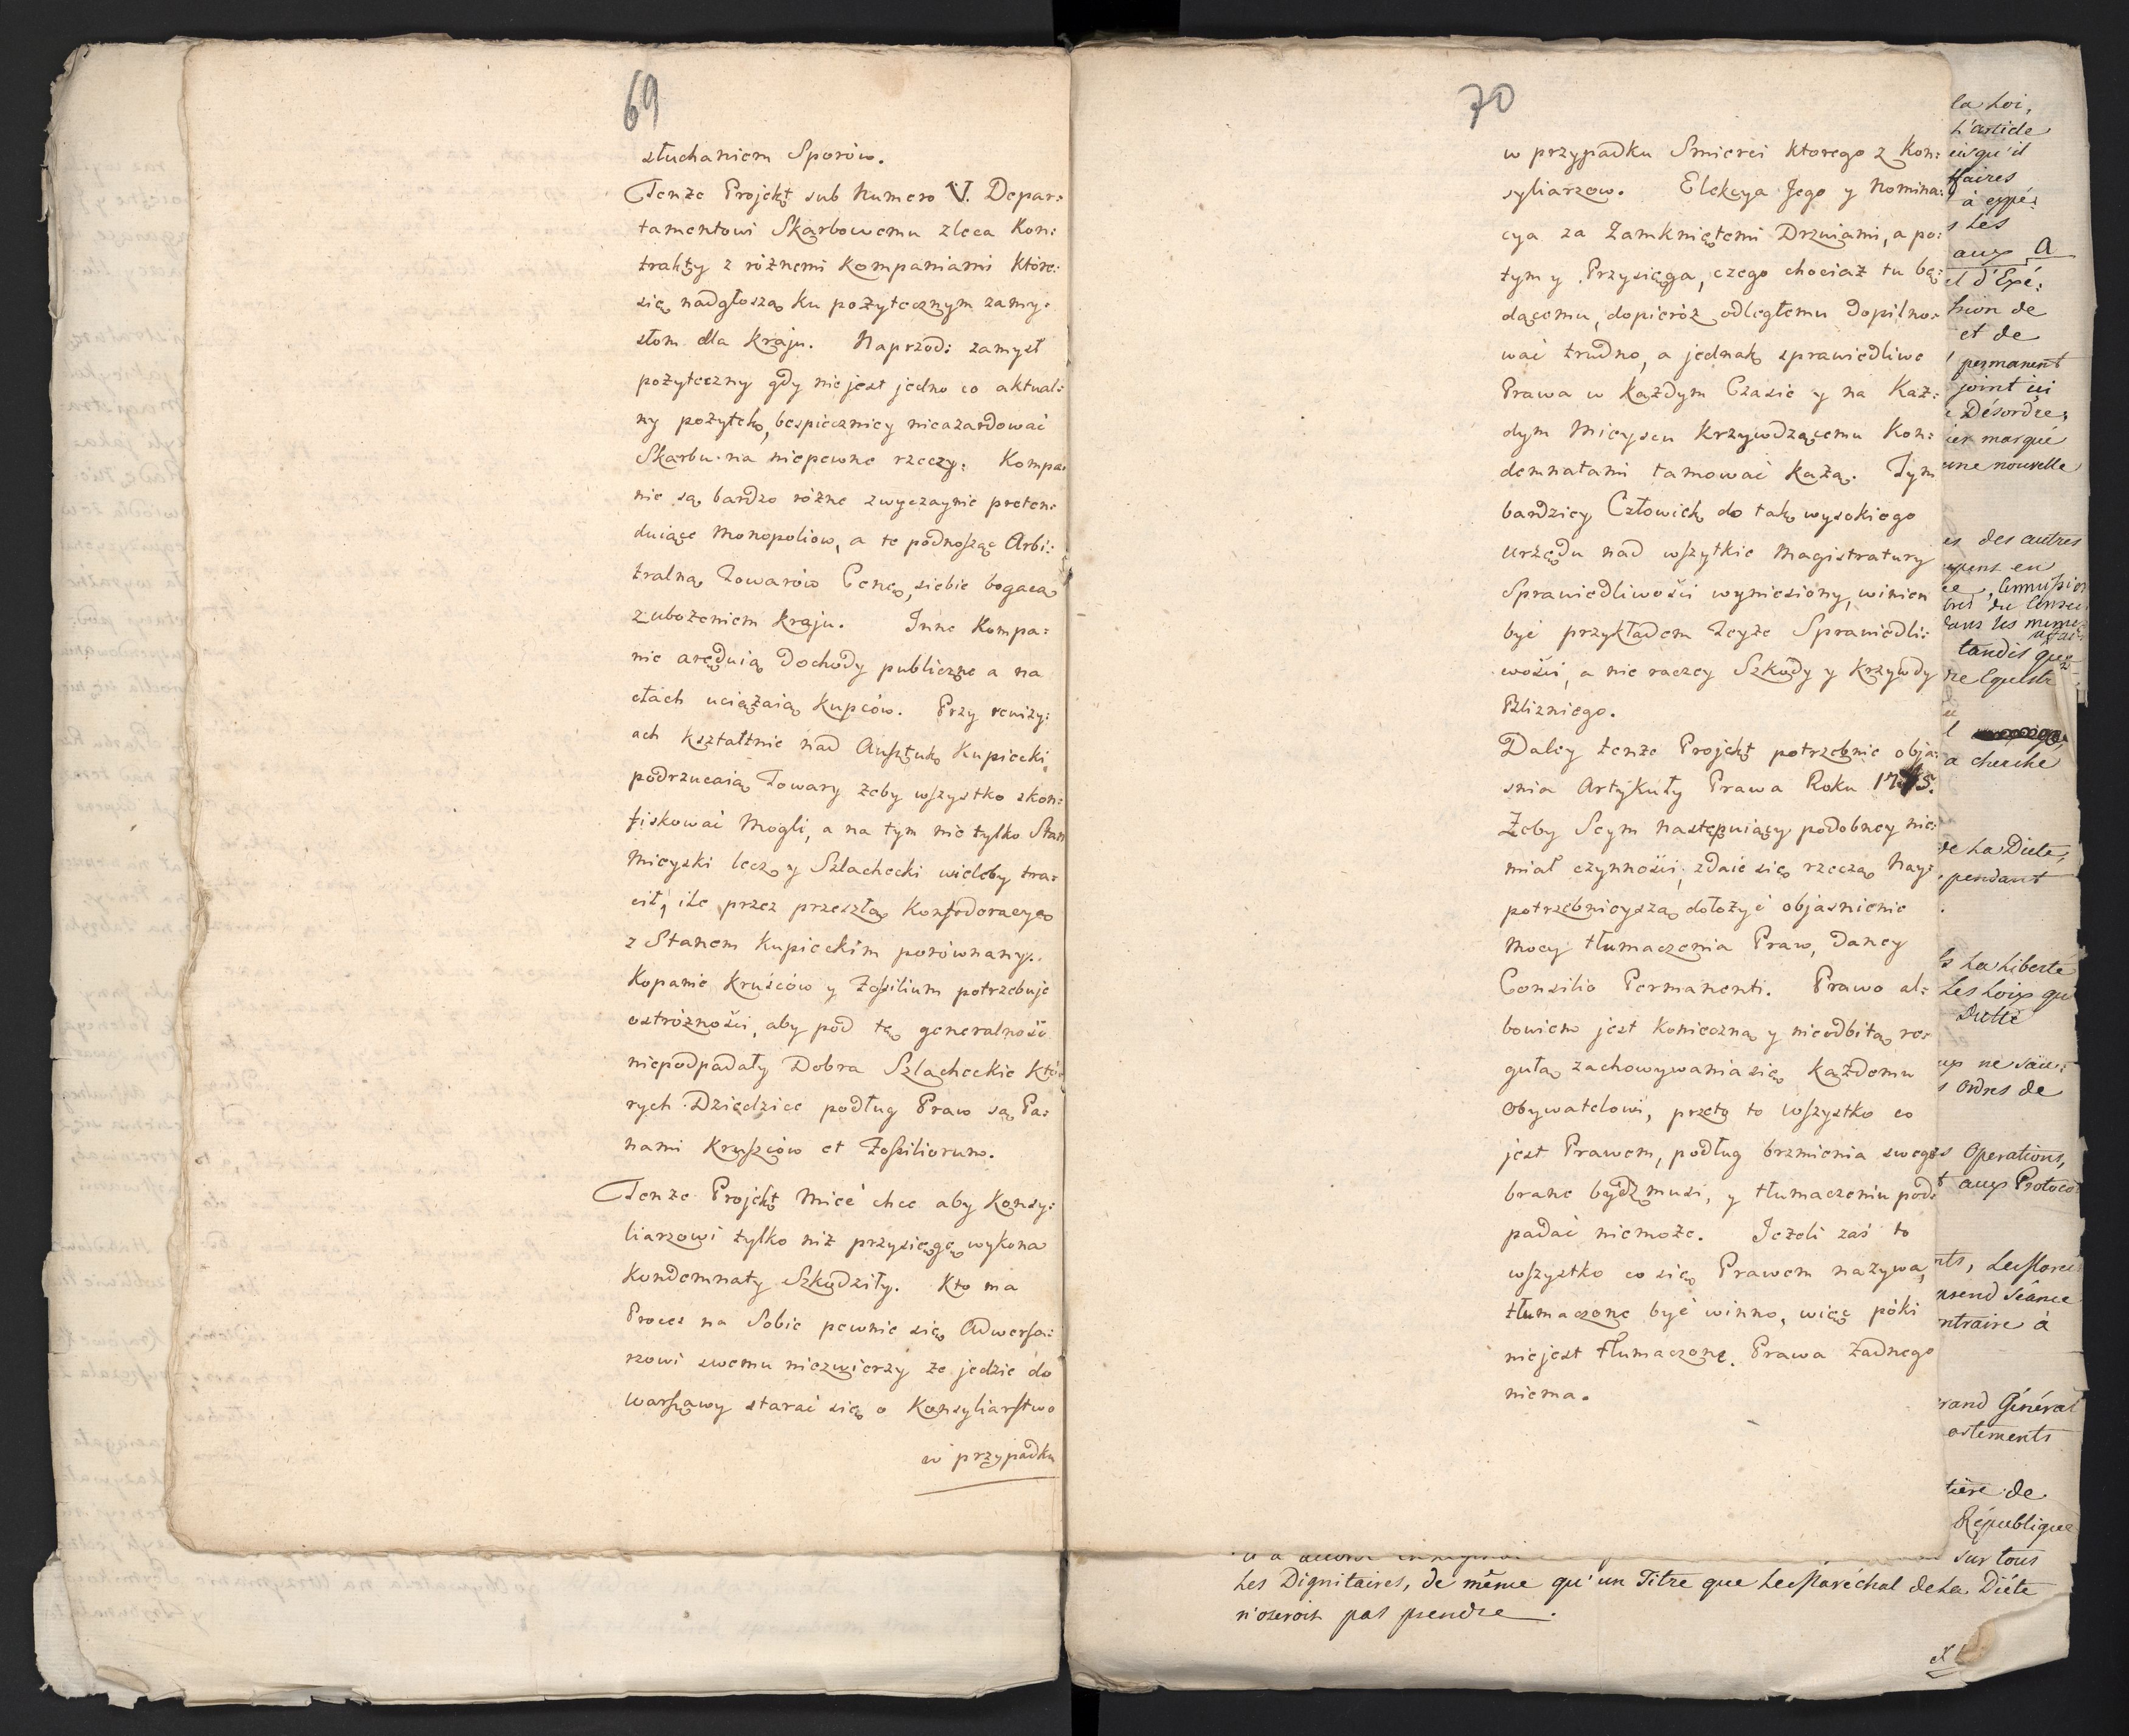 69
słuchaniem Sporów.
Tenże Projekt sub Numero V. Depar:
tamentowi Skarbowemu zleca Kon:
trakty z różnemi Kompaniami które
się nadgłoszą ku pożytecznym zamy:
słom dla kraju. Naprzod: zamysł
pożyteczny gdy niejest jedno co aktual:
ny pożytek, bespieczniey nieazardować
Skarbu na niepewne rzeczy: Kompa
nie są bardzo różne zwyczaynie preten:
duiące Monopoliow, a te podnosząc Arbi:
tralną Towarów Cenę, siebie bogacą
z ubożeniem kraju. Inne Kompa:
nie aręduią Dochody publiczne a na
cłach uciążaią kupców. Przy rewizy:
ach kształtnie nad Ausztuk Kupiecki
podrzucaią Towary żeby wszystko skon:
fiskować Mogli, a na tym nie tylko Stan
Mieyski lecz y Szlachecki wieleby tra:
cił, ile przez przeszłą Konfederacyę
z Stanem Kupieckim porównany.
Kopanie Kruśców y Fossilium potrzebuje
ostróżności, aby pod tę generalność
niepodpadały Dobra Szlacheckie któ
rych Dziedzice podług Praw są Pa:
nami Kruszców et Fossiliorum.
Tenże Projekt Mieć chce aby Konsy:
liarzowi tylko niż przysięgę wykona
Kondemnaty Szkodziły. Kto ma
Proces na Sobie pewnie się Adwersa:
rzowi swemu niezwierzy że jedzie do
Warszawy starać się o Konsyliarstwo
w przypadku
70
w przypadku Smierci ktorego z Kon:
syliarzow. Elekcya Jego y Nomina:
cya za Zamkniętemi Drzwiami, a po:
tym y Przysięga, czego chociaż tu bę:
dącemu, dopieróż odległemu Dopilno:
wać trudno, a jednak sprawiedliwe
Prawa w każdym Czasie y na Kaz:
dym Mieyscu Krzywdzącemu Kon:
demnatami tamować każą. Tym
bardziey Człowiek do tak wysokiego
Urzędu nad wszytkie Magistratury
Sprawiedliwości wyniesiony, winien
być przykładem teyże Sprawiedli:
wości, a nie raczey Szkody y Krzywdy
Blizniego.
Daley tenże Projekt potrzebnie obja:
snia Artykuły Prawa Roku
Żeby Seym następuiący podobney nie:
miał czynności; zdaie się rzeczą Nay:
potrzebnieyszą dołożyć objasnienie
Mocy tłumaczenia Praw, Daney
Consilio Permanenti. Prawo al:
bowiem jest Konieczną y nieodbitą re:
gułą zachowywania się każdemu
Obywatelowi, przeto to wszystko co
jest Prawem, podług brzmienia swego
brane bydź musi, y tłumaczeniu pod:
padać niemoże. Jeżeli zaś to
wszystko co się Prawem nazywa,
tłumaczone być winno, więc póki
niejest tłumaczone, Prawa żadnego
niema.
la Loi,
L'article
qu'il
à expé:
Les
aux A
et d'Expé:
et de
permanent
joint ici
Désordre,
marqué
une nouvelle
des autres
en
du Conseil
dans les memes
tandis que
a cherché
de La Diète,
pendant
La Liberté
Les Loix qui
Diète
ordres de
Operations,
aux Protocol
Séance
à
Général
de
République
sur tous
Les Dignitaires, de même qu'un Titre que Le Maréchal de La Diéte
n'oseroit pas prendre.